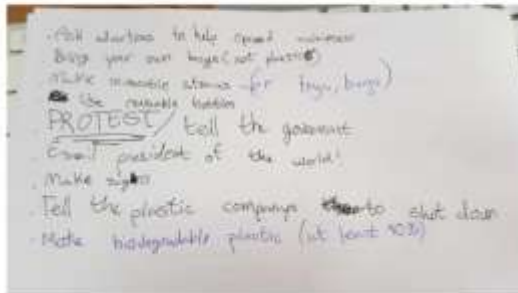 · Ask advertisers to help spread
Bring your own bags (not plastic)
Make reuseable for toys, bags)
Use reusable bottles
· PROTEST / tell the goverment
· Email president of the world!
· Make signs
· Tell the plastic companys to shut down
· Make biodegradable plastic (at least 90%)